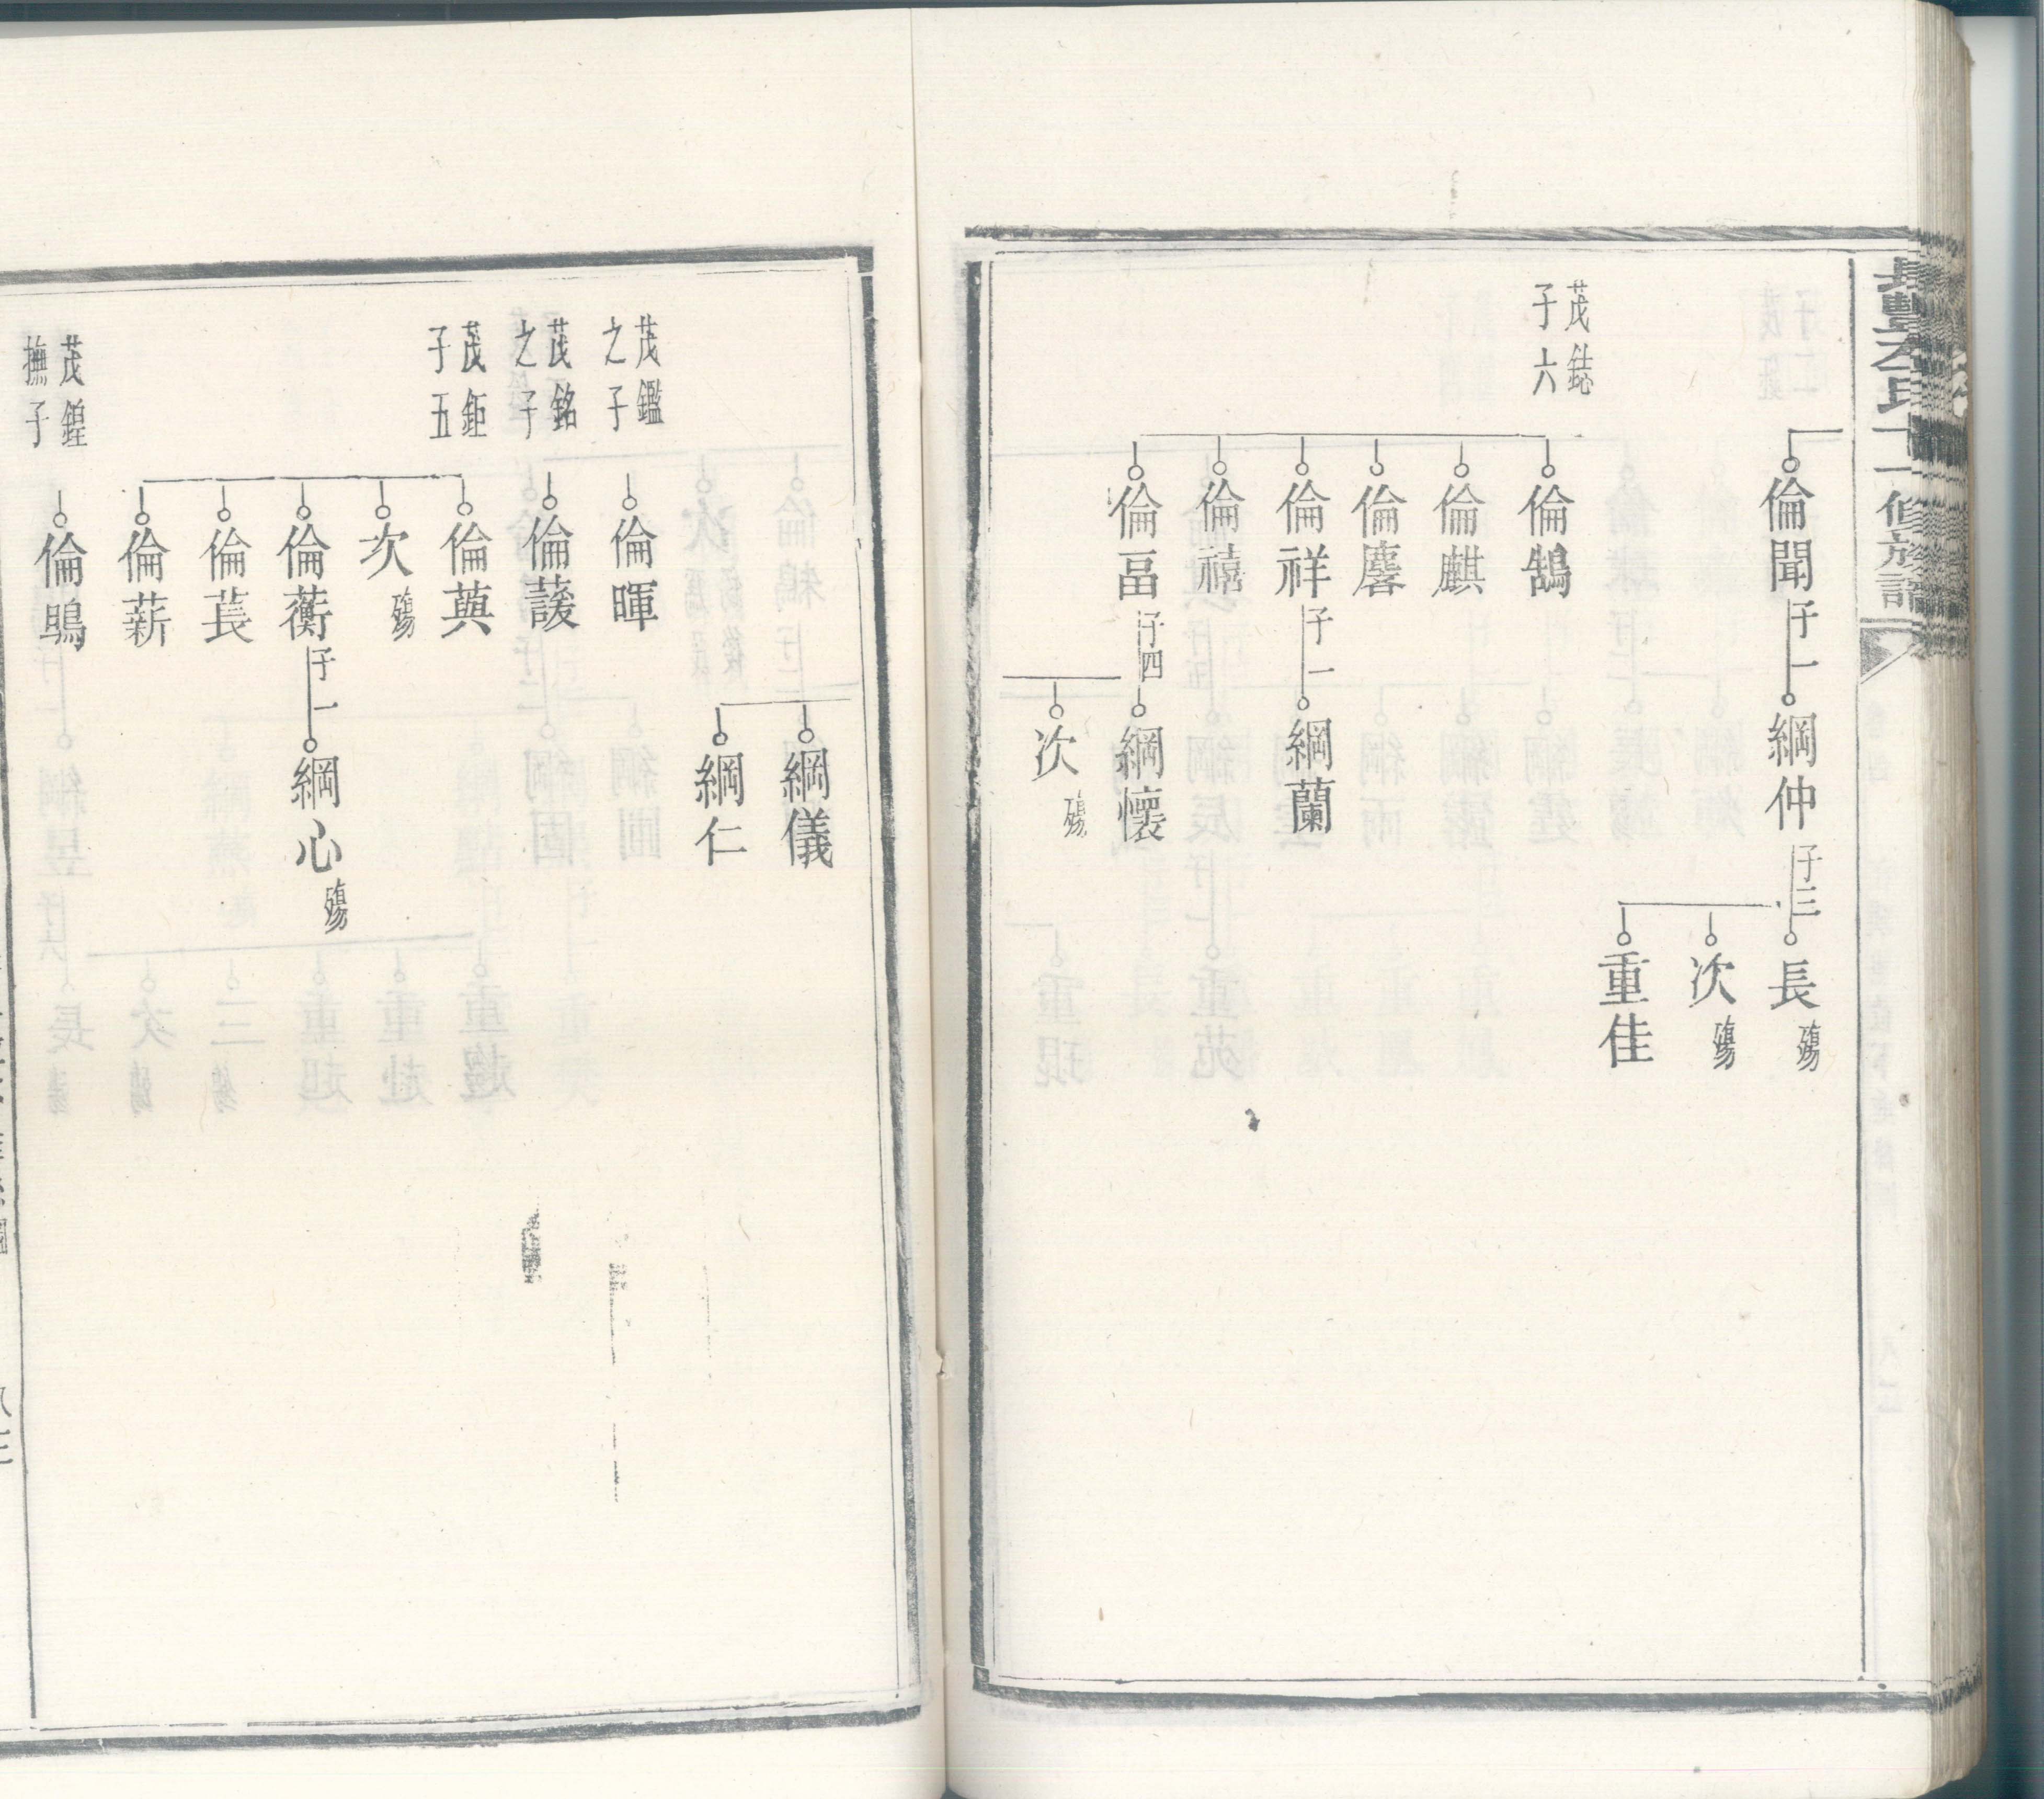 長豐左氏十一修族譜
倫聞 子一
綱仲 子三
長 殤
次 殤
重佳
茂鋕
子六
倫鵠
倫麒
倫麐
倫祥 子一
綱蘭
倫禧
倫畐 子四
綱懷
次 殤
綱儀
綱仁
茂鑑
之子
倫暉
茂銘
之子
倫蘐
茂鉅
子五
倫蕒
次 殤
倫蘅 子一
綱心 殤
倫萇
倫薪
茂鍠
撫子
倫鵾
八三